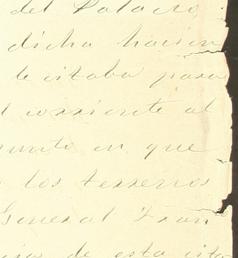 del Palacio
dicha hacien
le citaba para
corriente al
punto en que
los terrenos
General Fran
de esta